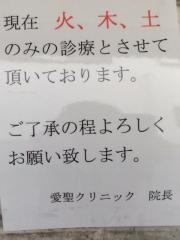 現在 火、木、土
のみの診療とさせて
頂いております。
ご了承の程よろしく
お願い致します。
愛聖クリニック 院長